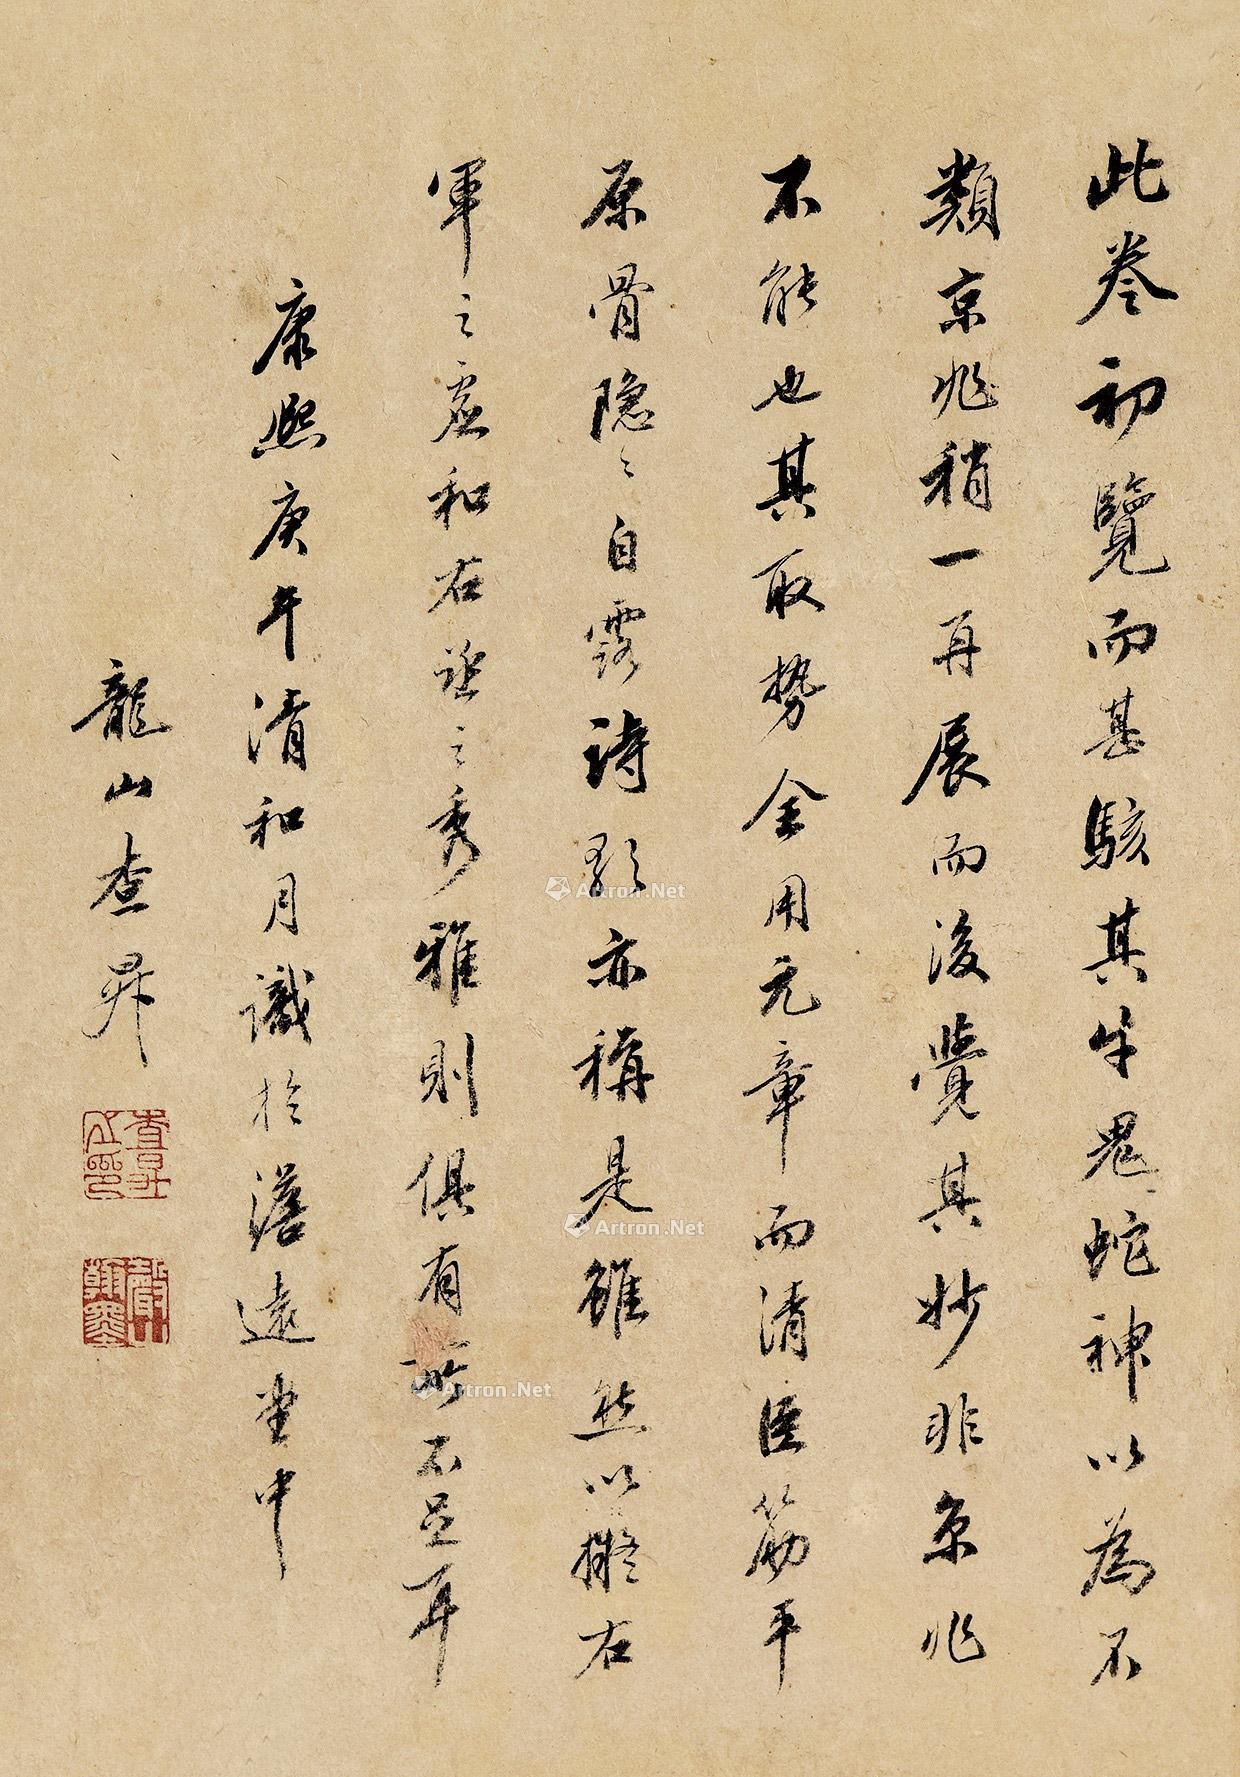 此卷初覽而甚駭其牛鬼蛇神以為不
類京兆稍一再展而後覺其妙非京兆
不能也其取勢全用元章而清臣筋平
原骨隱〻自露詩歌亦稱是雖然以擬右
軍之虛和右丞之秀雅則俱有所不足耳
康熙庚午清和月識於澹遠堂中
龍山查昇
查昇之印
Artron.Net
Artron.Net
Artron.Net